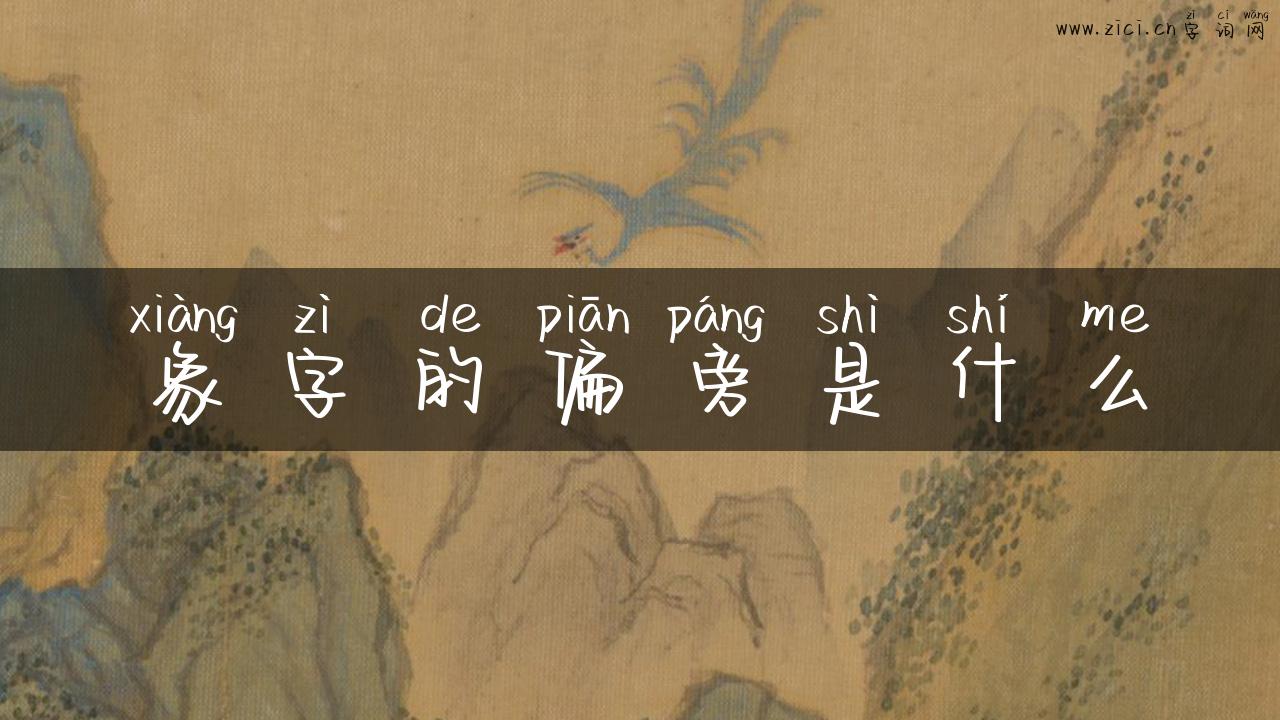 zì cí wǎng
www.zici.cn字词网
xiàng zì de piān páng shì shí me
象字的偏旁是什么